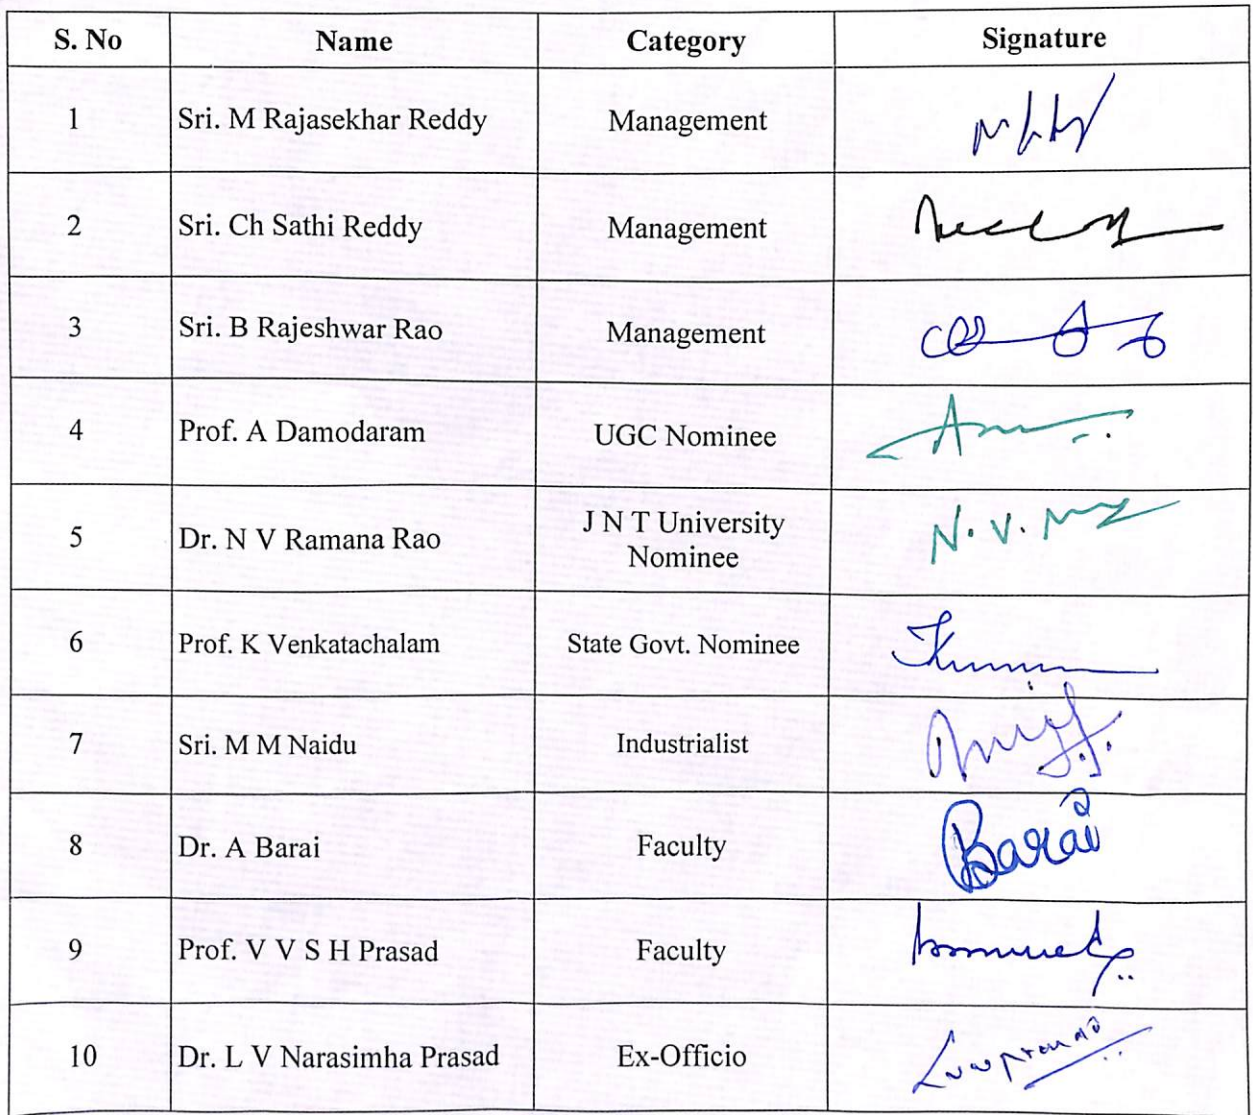 S. No Name Category Signature
1 Sri. M Rajasekhar Reddy Management
2 Sri. Ch Sathi Reddy Management
3 Sri. B Rajeshwar Rao Management
4 Prof. A Damodaram UGC Nominee
5 Dr. N V Ramana Rao J N T University
Nominee N. V.
6 Prof. K Venkatachalam State Govt. Nominee
7 Sri. M M Naidu Industrialist
8 Dr. A Barai Faculty Barai
9 Prof. V V S H Prasad Faculty
10 Dr. L V Narasimha Prasad Ex-Officio